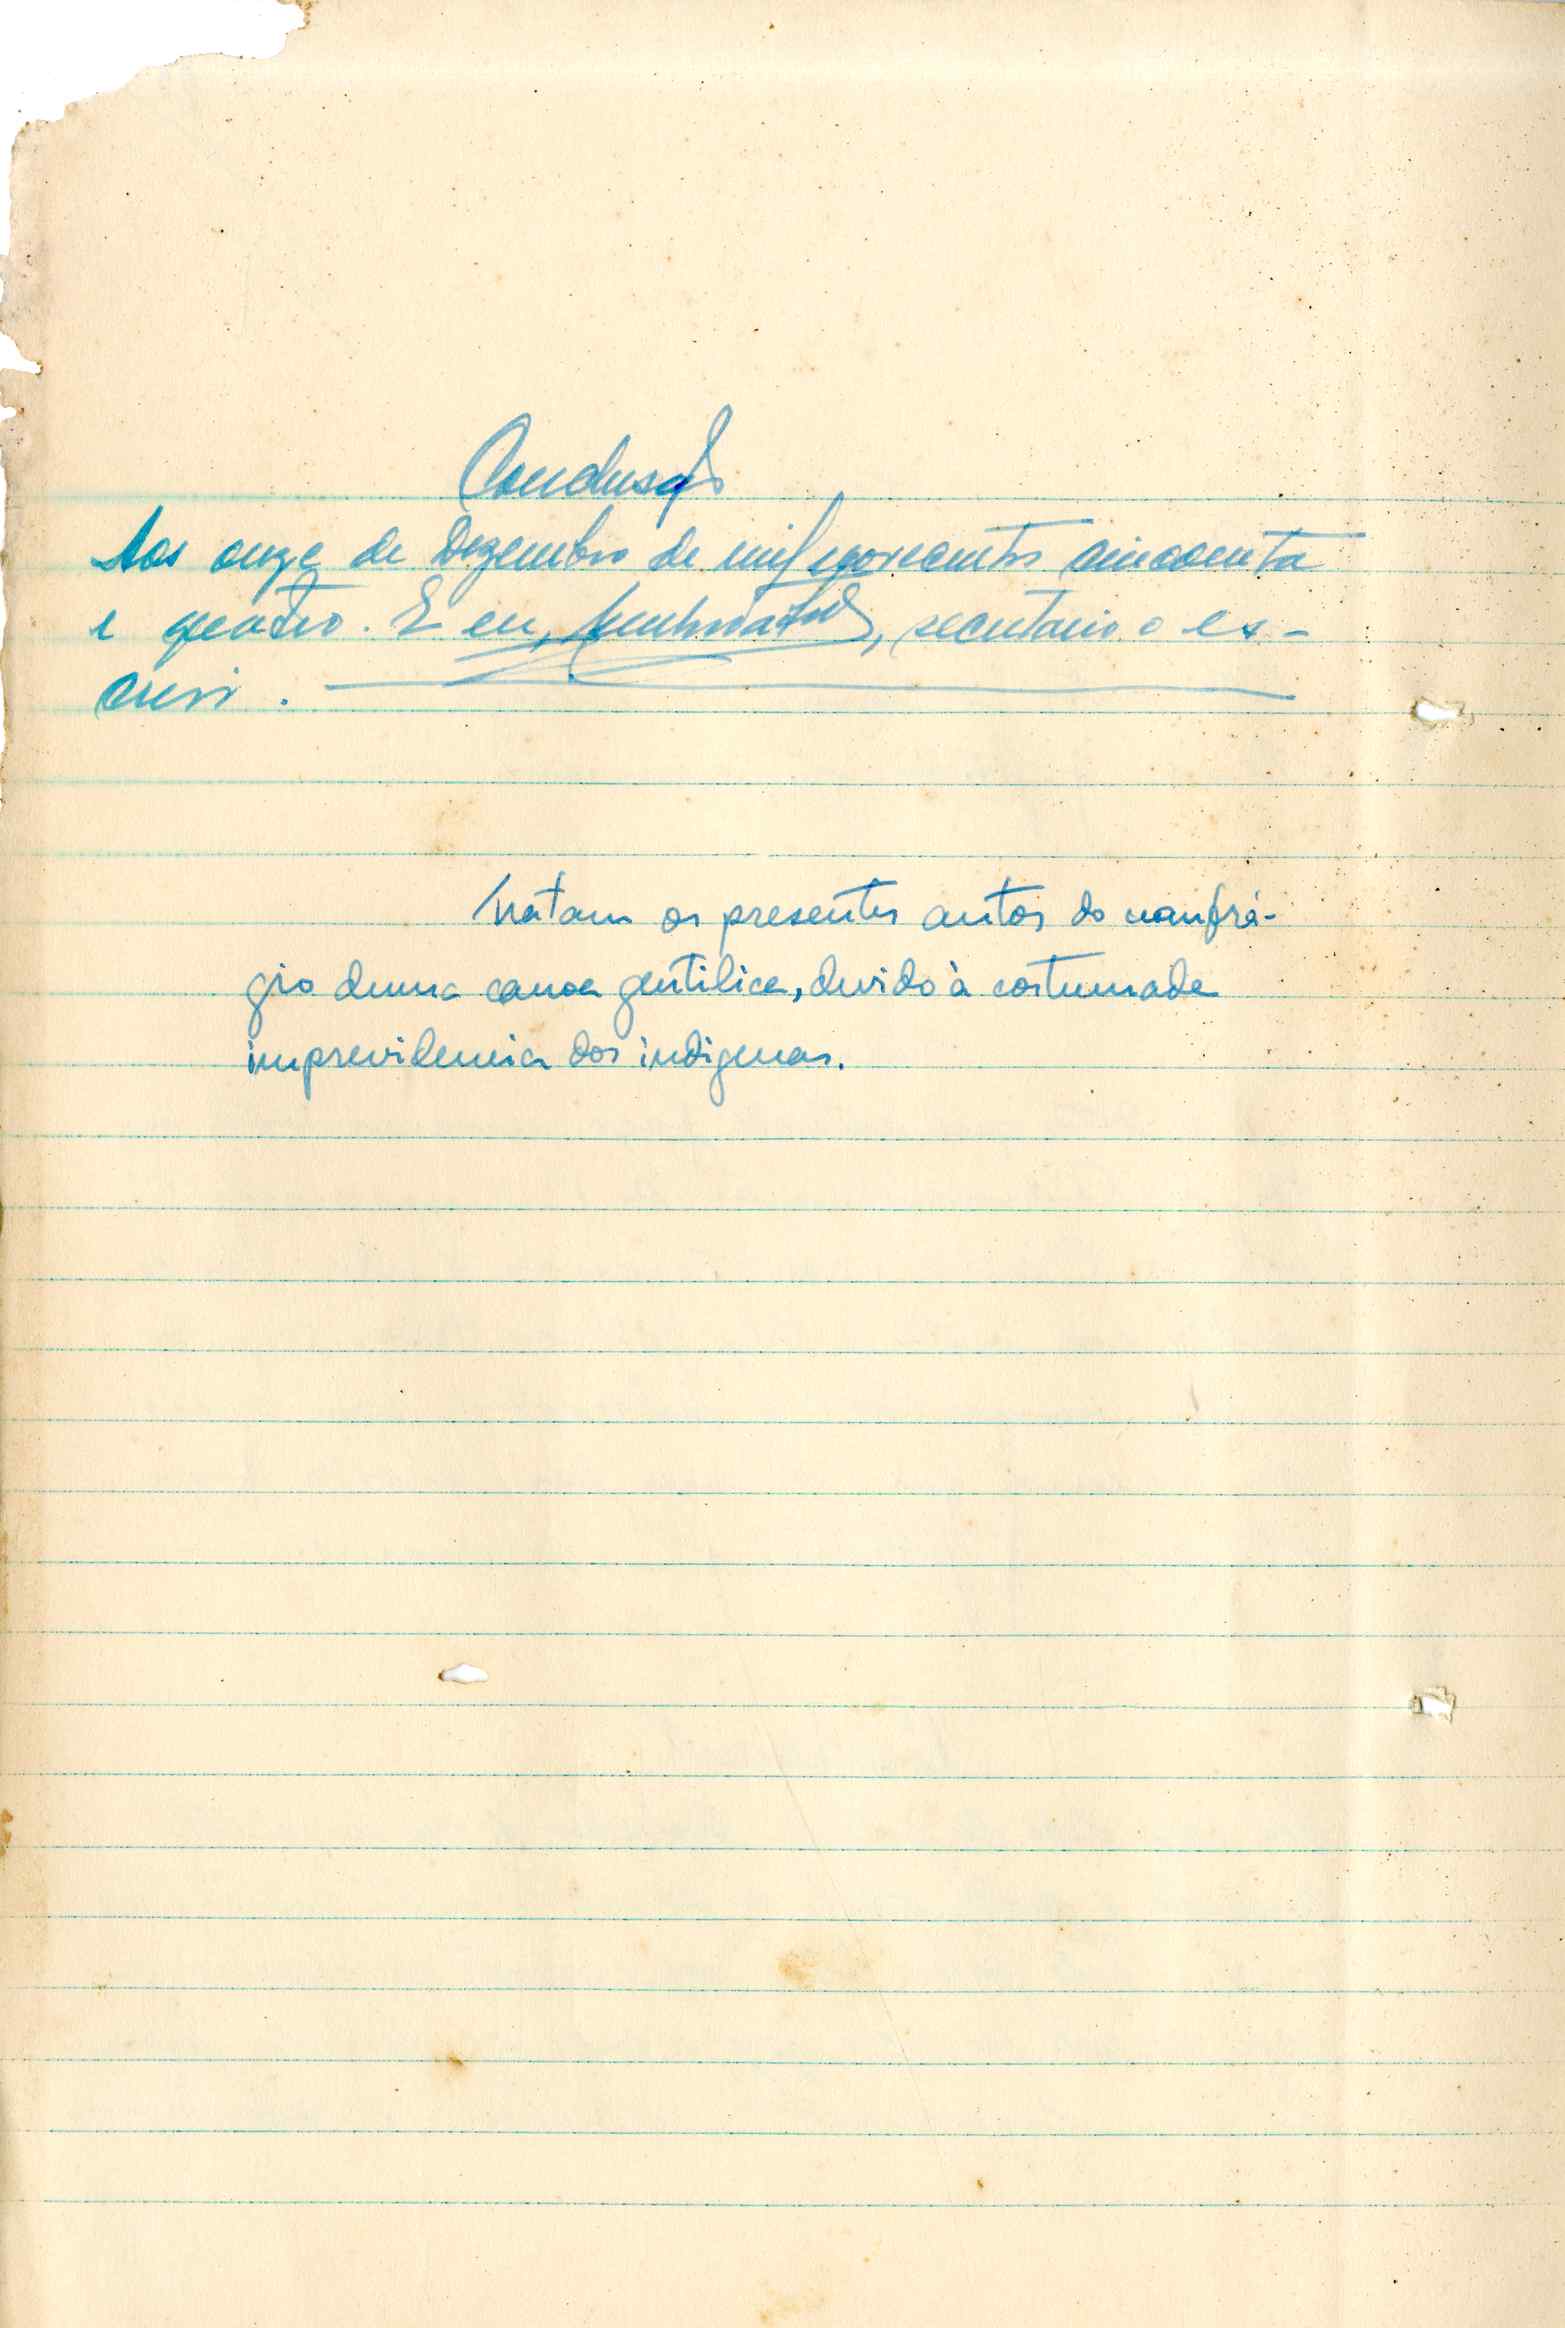 Conclusão
Aos onze de Dezembro de mil novecentos cincoenta
e quatro. E eu, secretario o es-
crevi.
Tratam os presentes autos do naufrá-
gio duma canoa gentilica, devido à costumada
imprevidencia dos indigenas.